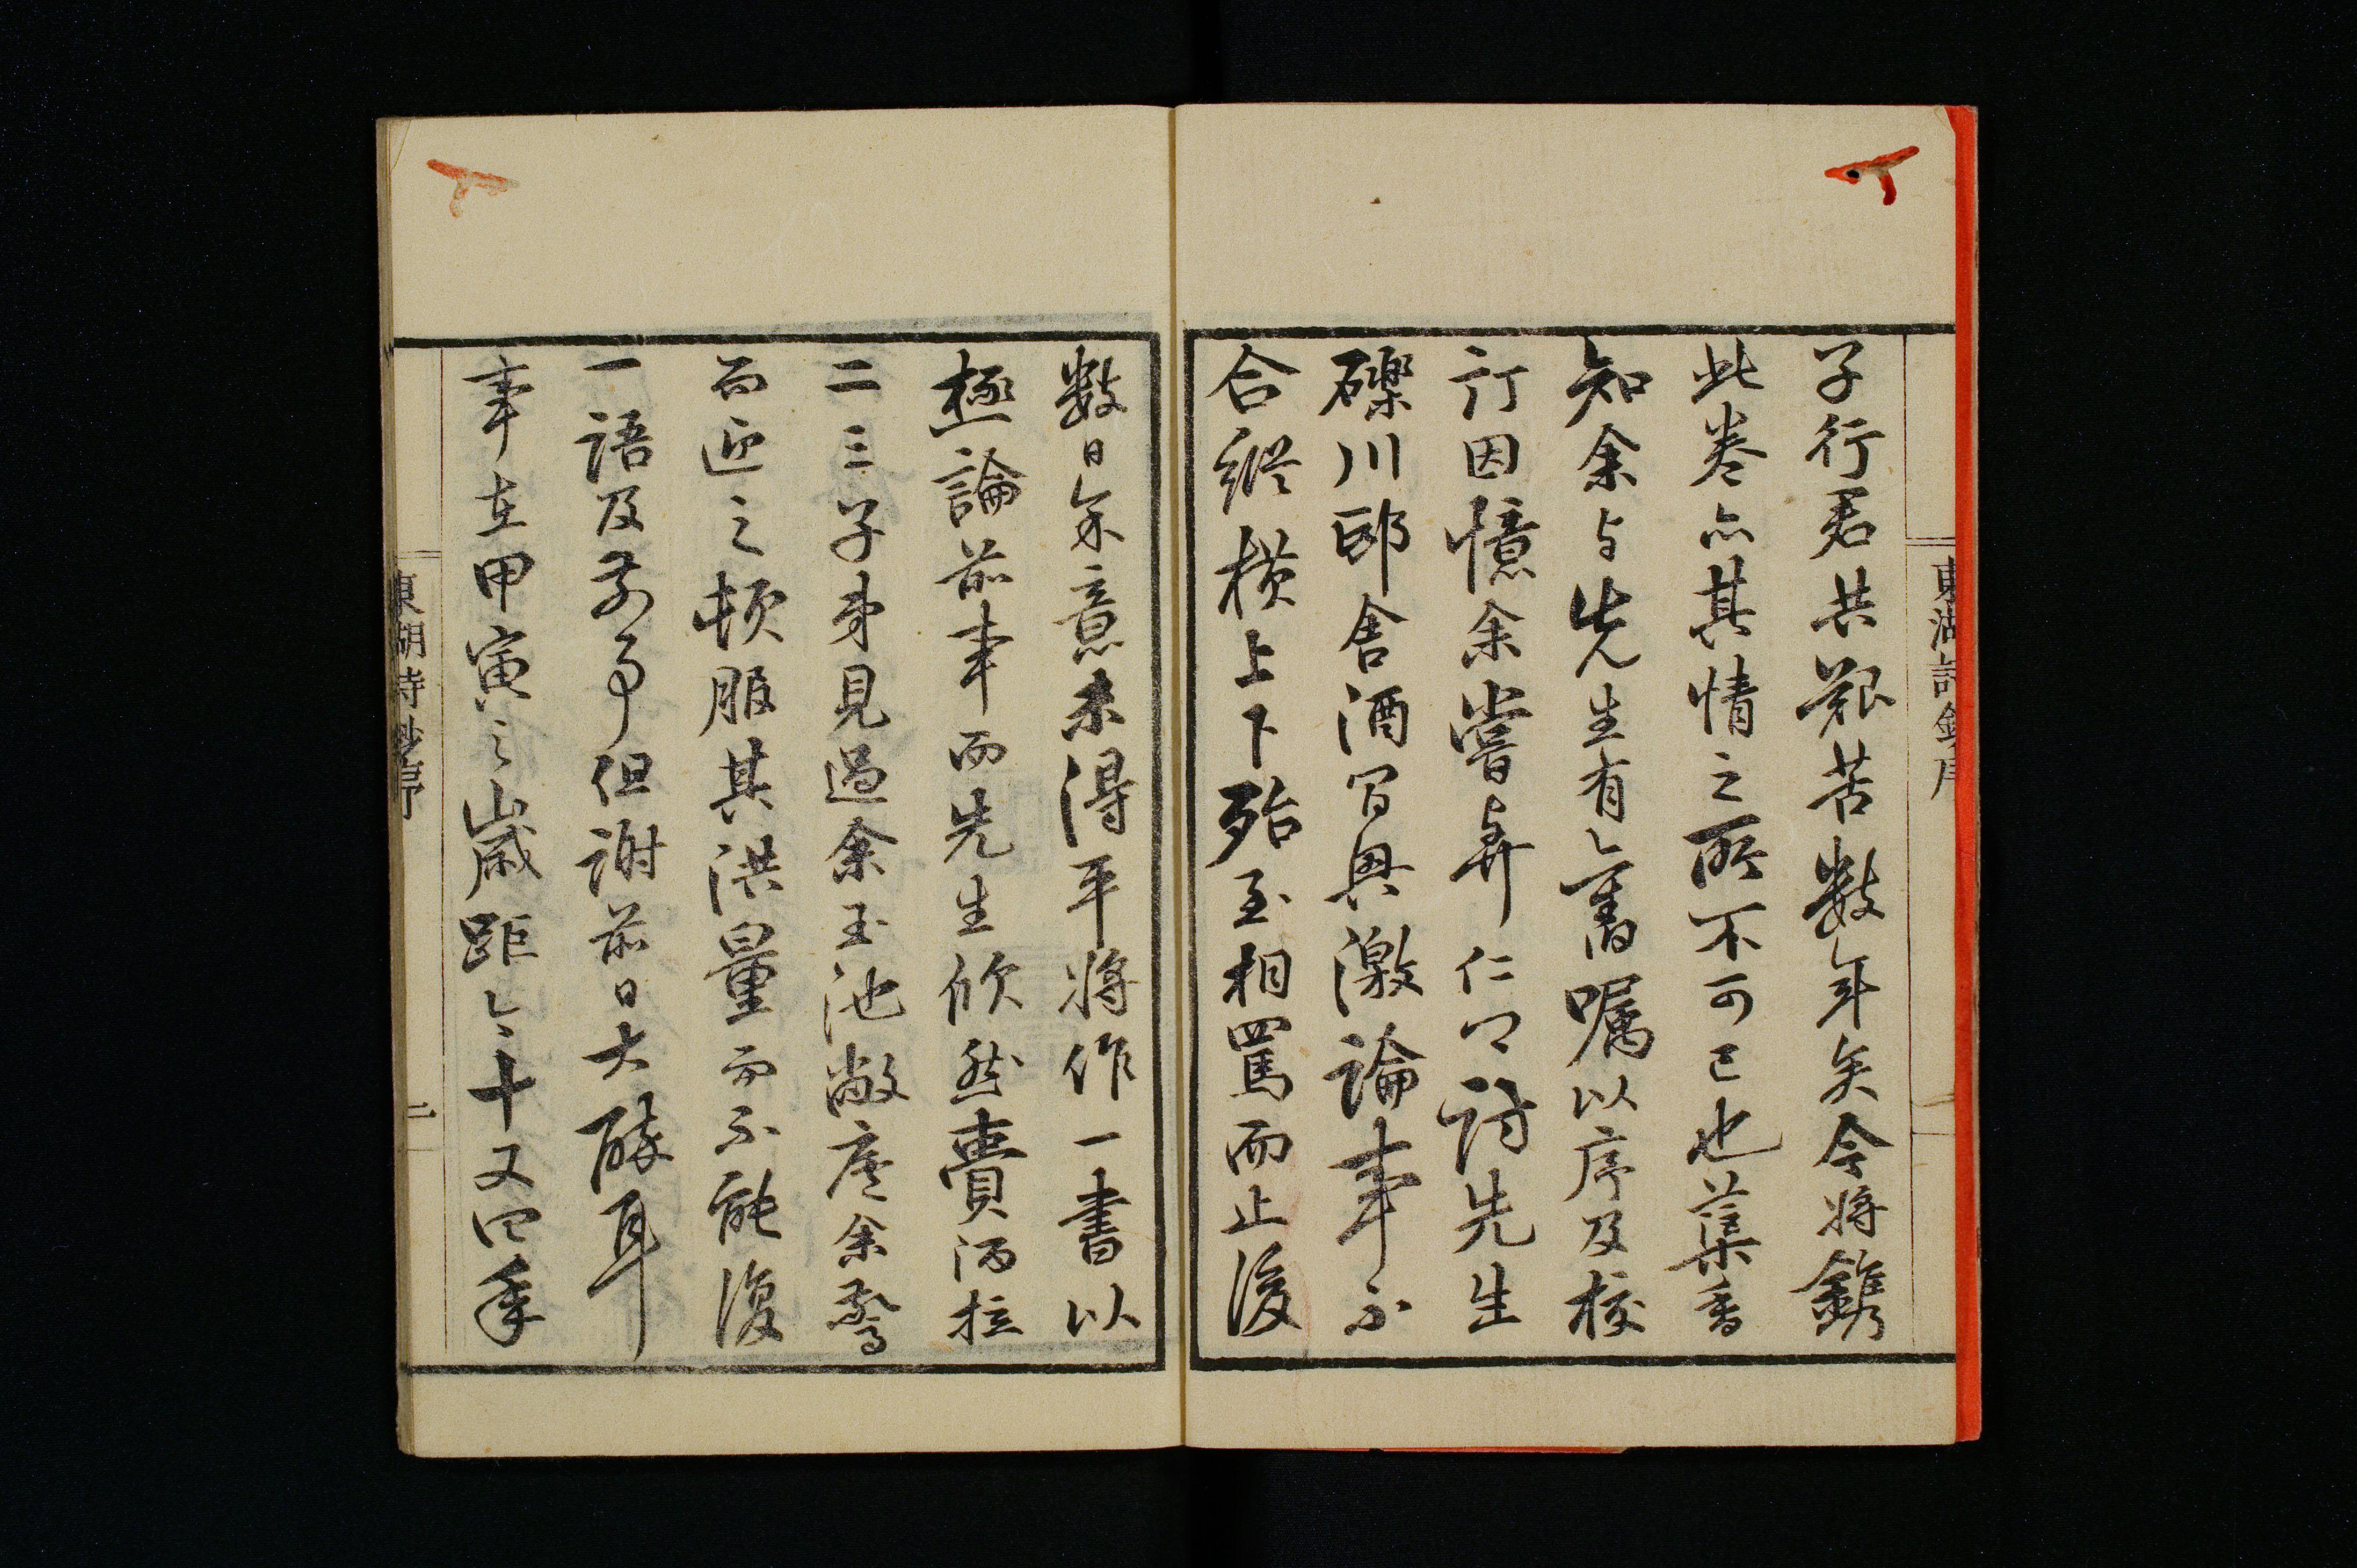 東湖詩鈔序
子行君共艱苦數年矣今將鐫
此卷亦其情之所不可已也藁
知余与先生有舊囑以序及校
訂因憶余嘗与弄仁訪先生
礫川邸舍酒間與激論事不
合縱橫上下殆至相罵而止後
數日余意未得平將作一書以
極論前事而先生欣然賷酒拉
二三子弟見過余玉池敝廬余驚
而迎之頓服其洪量而不能復
一語及前事但謝前日大醉耳
事在甲寅之歲距今十又四年
東湖詩鈔序
二